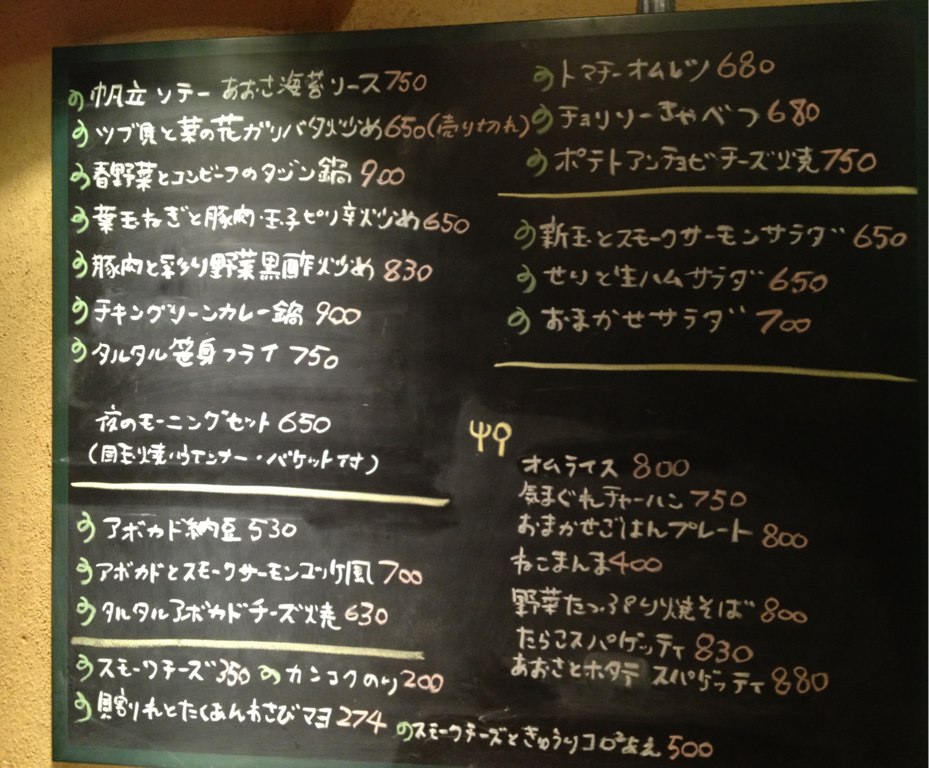 帆立ソテー あおさ海苔ソース 750
ツブ貝と菜の花ガリバタ炒め 650(売り切れ)
春野菜とコンビーフのタジン鍋 900
葉玉ねぎと豚肉・玉子ピリ辛炒め 650
豚肉と彩り野菜黒酢炒め 830
チキングリーンカレー鍋 900
タルタル笹身フライ 750
夜のモーニングセット 650
(目玉焼・ウインナー・バケット付)
のアボカド納豆 530
アボカドとスモークサーモンユッケ風 700
タルタルアボカドチーズ焼 630
スモークチーズ 350 のカンコクのり 200
貝割れとたくあんわさびマヨ 274
のスモークチーズときゅうりコロコロあえ 500
トマチーオムレツ 680
チョリソーきゃべつ 680
ポテトアンチョビチーズ焼 750
新玉とスモークサーモンサラダ 650
せりと生ハムサラダ 650
おまかせサラダ 700
オムライス 800
気まぐれチャーハン 750
おまかせごはんプレート 800
ねこまんま 400
野菜たっぷり焼そば 800
たらこスパゲッティ 830
あおさとホタテ スパゲッティ 880